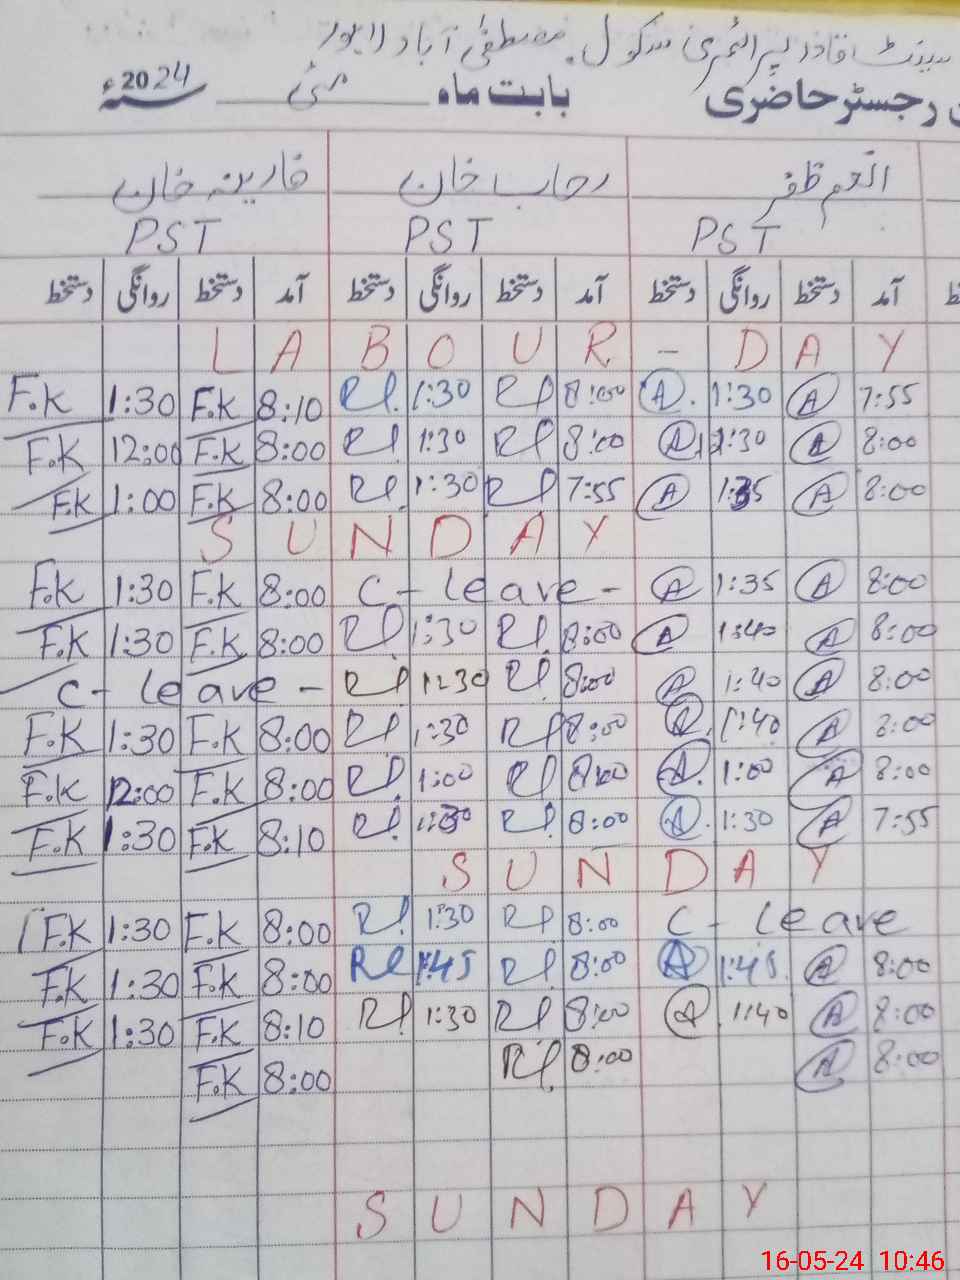 سینٹ قادر پرائمری سکول مصطفیٰ آباد لاہور
رجسٹر حاضری بابت ماہ مئی سنہ 2024ء
انعم ظفر رحاب خان فارینہ خان
PST PST PST
دستخط روانگی دستخط آمد دستخط روانگی دستخط آمد دستخط روانگی دستخط آمد
LABOUR - DAY
F.K 1:30 F.K 8:10 Rl. 1:30 Rl 8:00 A. 1:30 A 7:55
F.K 12:00 F.K 8:00 Rl 1:30 Rl 8:00 A 12:30 A 8:00
F.K 1:00 F.K 8:00 Rl. 1:30 Rl 7:55 A 1:35 A 8:00
SUNDAY
F.K 1:30 F.K 8:00 C- leave - A 1:35 A 8:00
F.K 1:30 F.K 8:00 Rl 1:30 Rl. 8:00 A 1:40 A 8:00
C- leave - Rl 1:30 Rl 8:00 A 1:40 A 8:00
F.K 1:30 F.K 8:00 Rl 1:30 Rl 8:00 A 1:40 A 8:00
F.K 12:00 F.K 8:00 Rl. 1:00 Rl 8:00 A. 1:00 A 8:00
F.K 1:30 F.K 8:10 Rl. 1:30 Rl. 8:00 A. 1:30 A 7:55
SUNDAY
F.K 1:30 F.K 8:00 Rl. 1:30 Rl 8:00 C- leave
F.K 1:30 F.K 8:00 Rl 1:45 Rl 8:00 A 1:45 A 8:00
F.K 1:30 F.K 8:10 Rl. 1:30 Rl 8:00 A 1:40 A 8:00
F.K 8:00 Rl 8:00 A 8:00
SUNDAY
16-05-24 10:46